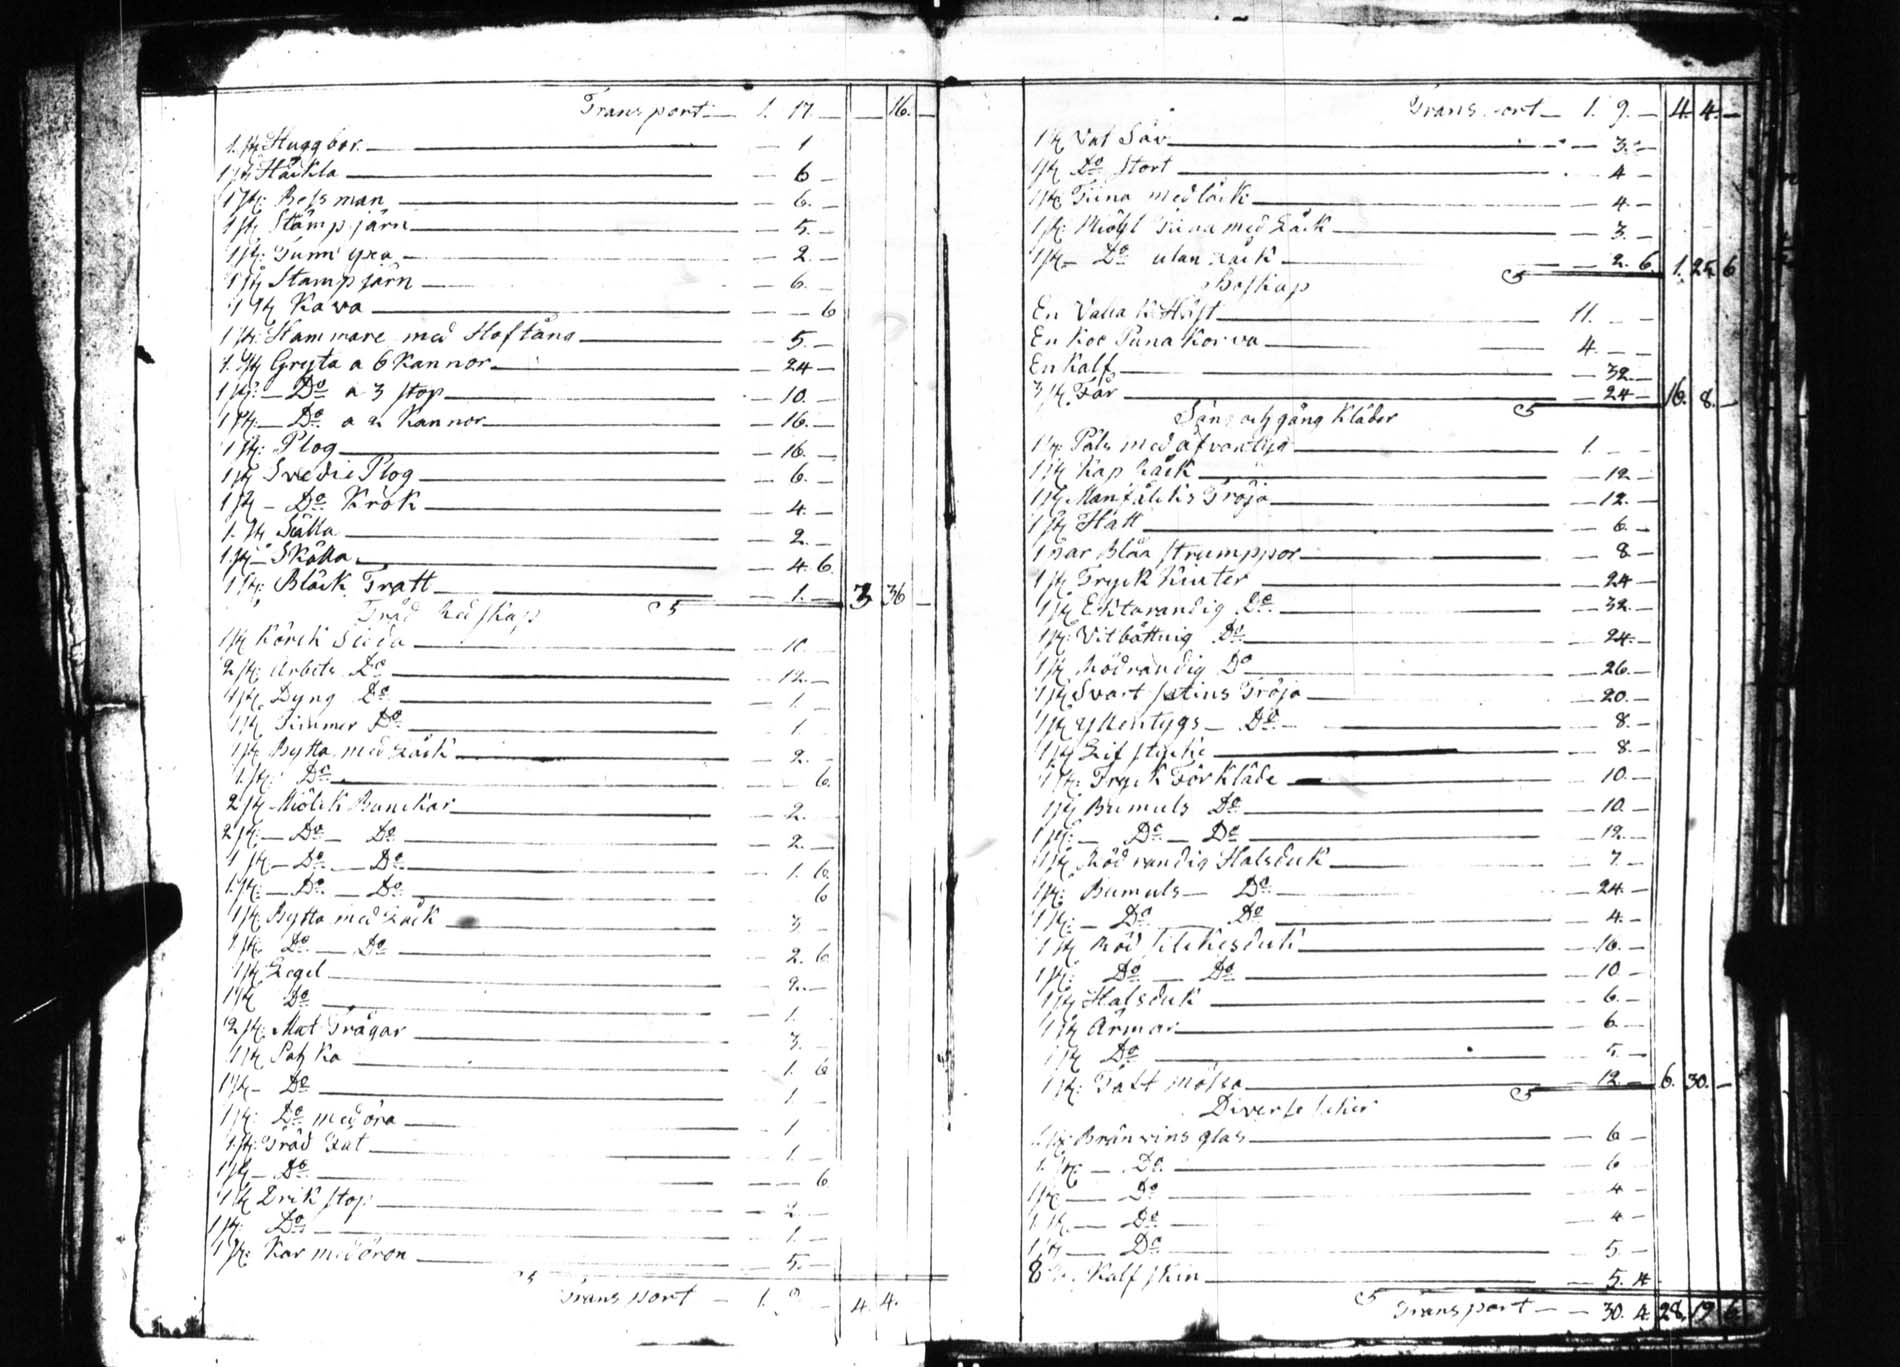 Transport — 1. 17. — — 16. —
1. st Huggbor — 1
1 st Häckla — 6 —
1 st: Bessman — 6. —
1 st Stämpjärn — 5. —
1 st: Tunn yxa — 2. —
1 st Stampjärn — 6. —
1 st Kava — — 6
1 st: Hammare med Hoftång — 5. —
1. st Gryta a 6 Kannor — 24 —
1 st: — Do a 3 stop — 10. —
1 st: — Do a 2 Kannor — 16. —
1 st: Plog — 16. —
1 st Svedie Plog — 6. —
1 st — Do Krok — 4. —
1. st Sålla — 2. —
1 st — Skålla — 4. 6.
1 st: Bläck Tratt — 1. — 3 36 —
Träd Redskap
1 st Körck Släda — 10. —
2 st: Arbets Do — 12. —
1 st. Dyng Do — 1.
1 st Timmer Do — 1
1 st Bytta med Låck — 2. —
1. st: Do — 6.
2 st Miölck Bunckar — 2.
2 st: — Do — Do — 2. —
1 st — Do — Do — 1. 6.
1. st: — Do — Do — 6
1 st: Bytta med Låck — 3 —
1. st: Do — Do — 2. 6
1 st Legel — 2. —
1 st Do — 1.
2 st: Mat Trågar — 3. —
1 st Satska — 1. 6
1 st — Do — 1. —
1 st: Do med öra — 1
1. st: Träd Fat — 1. —
1 st — Do — — 6.
1 st Drik stop — 2. —
1 st: Do — 1. —
1 st: Kar med öron — 5. —
Transport — 1. 9 — 4. 4.
Transport — 1. 9. — 4. 4. —
1 st Vat Såv — 3. —
1 st Do Stort — 4 —
1 st Tiina med låck — 4. —
1 st: Miöhl Tiina med Låck — 3. —
1 st — Do utan Låck — 2. 6. 1. 25. 6
Boskap
En Vallak Häst — 11. — —
En Koo Puna Korva — 4. — —
En Kalf — 32. —
3 st Får — 24 — 16. 8. —
Säng och gång Kläder
1 st: Päls med öfvantyg — 1. — —
1 st Kap Råck — 12 —
1 st Manfålckis Tröja — 12. —
1 st Hatt — 6. —
1 par Blåa strumppor — 8 —
1 st Tryck Kiurtel — 24 —
1 st Ektarandig Do — 32. —
1 st: Vitbåttnig Do — 24. —
1 st: Rödrandig Do — 26. —
1 st Svart satins Tröja — 20. —
1 st yllentygs — Do — 8. —
1 st Lifstycke — 8. —
1 st: Tryck Förkläde — 10. —
1 st Bumuls Do — 10. —
1 st: — Do — Do — 12. —
1 st Rödrandig Halsduk — 7. —
1 st: Bumuls — Do — 24. —
1 st: — Do — Do — 4. —
1 st Röd silckesduk — 16. —
1 st: Do — Do — 10 —
1 st Halsduk — 6. —
1 st Ärmar — 6. —
1 st Do — 5. —
1 st: Taft mössa — 12. — 6. 30. —
Diverse saker
1 st: Bränvins glas — 6 —
1. st: — Do — 6 —
1 st — Do — 4 —
1 st — Do — 4 —
1 st — Do — 5. —
8 st. Kalf skin — 5. 4
Transport — — 30. 4. 28. 19. 6